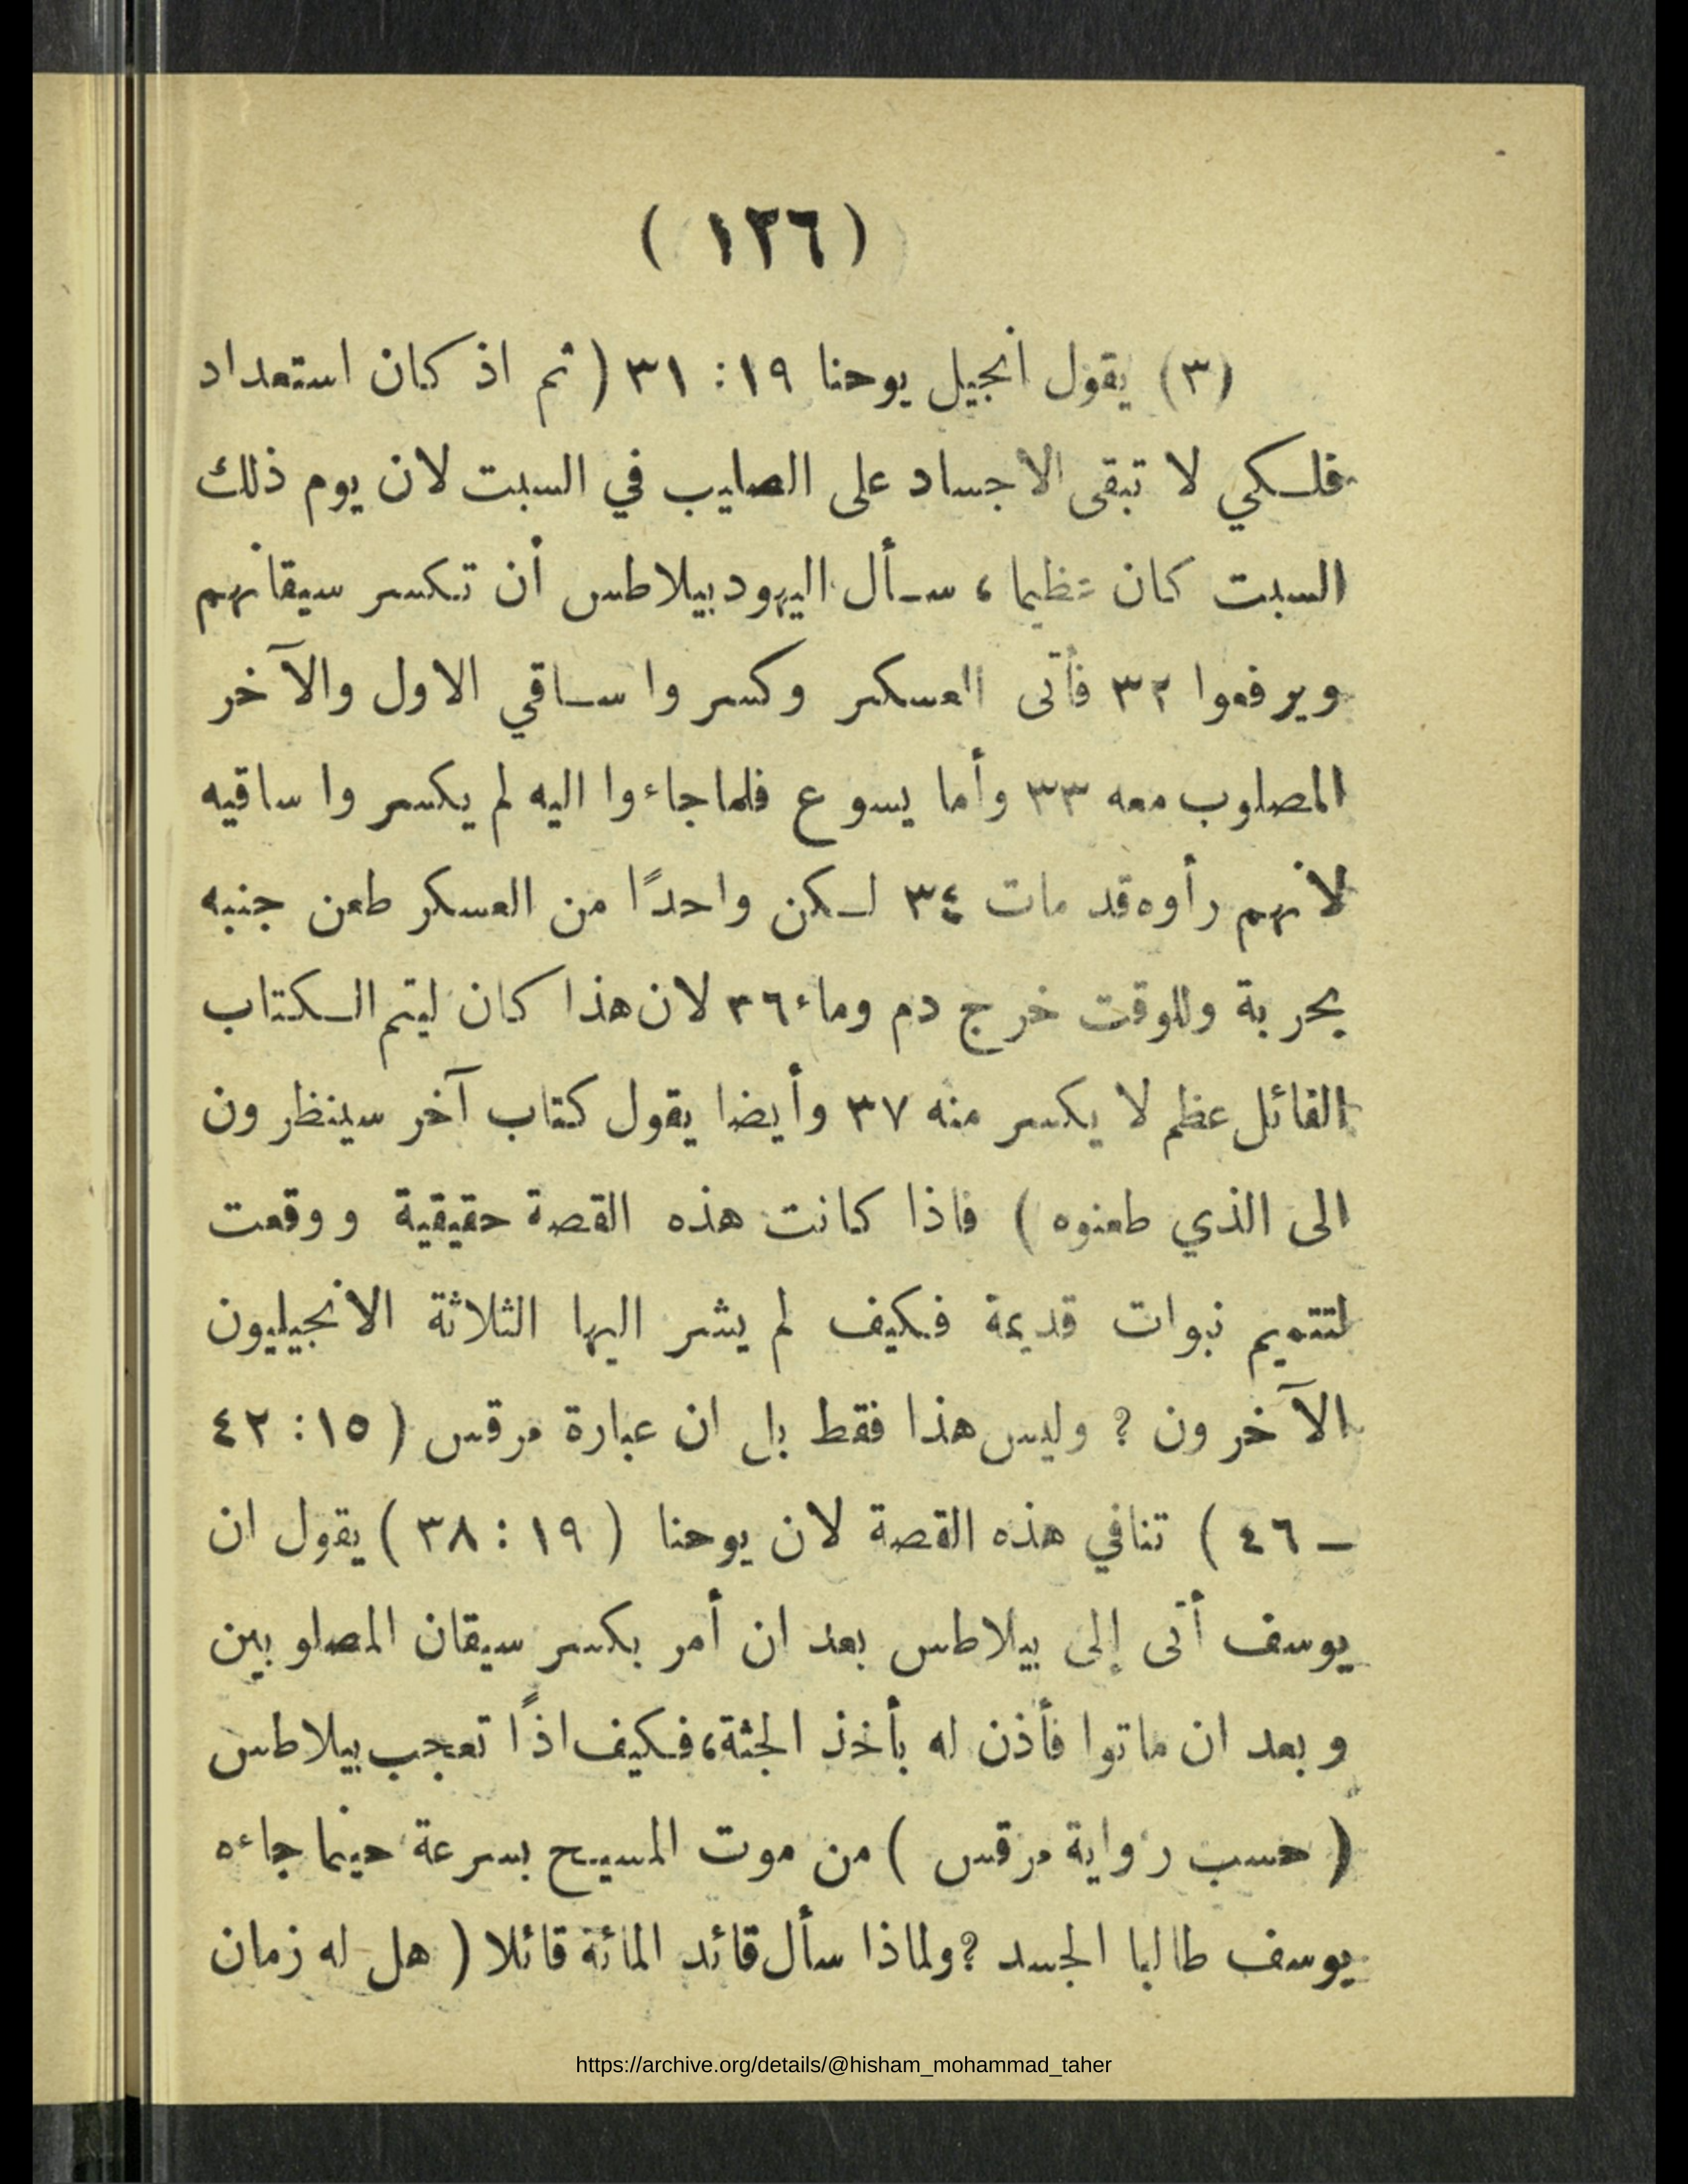 ( ١٢٦ )
(٣) يقول انجيل يوحنا ١٩ : ٣١ ( ثم اذ كان استعداد
فلكي لا تبقى الاجساد على الصليب في السبت لان يوم ذلك
السبت كان عظيما ، سأل اليهود بيلاطس أن تكسر سيقانهم
ويرفعوا ٣٢ فأتى العسكر وكسروا ساقي الاول والآخر
المصلوب معه ٣٣ وأما يسوع فلما جاءوا اليه لم يكسروا ساقيه
لانهم رأوه قد مات ٣٤ لكن واحدًا من العسكر طعن جنبه
بحربة وللوقت خرج دم وماء ٣٦ لان هذا كان ليتم الكتاب
القائل عظم لا يكسر منه ٣٧ وأيضا يقول كتاب آخر سينظرون
الى الذي طعنوه ) فاذا كانت هذه القصة حقيقية ووقعت
لتتميم نبوات قديمة فكيف لم يشر اليها الثلاثة الانجيليون
الآخرون ؟ وليس هذا فقط بل ان عبارة مرقس ( ١٥ : ٤٢
ـ ٤٦ ) تنافي هذه القصة لان يوحنا ( ١٩ : ٣٨ ) يقول ان
يوسف أتى إلى بيلاطس بعد ان أمر بكسر سيقان المصلوبين
وبعد ان ماتوا فأذن له بأخذ الجثة، فكيف اذًا تعجب بيلاطس
( حسب رواية مرقس ) من موت المسيح بسرعة حينما جاءه
يوسف طالبا الجسد ؟ ولماذا سأل قائد المائة قائلا ( هل له زمان
https://archive.org/details/@hisham_mohammad_taher